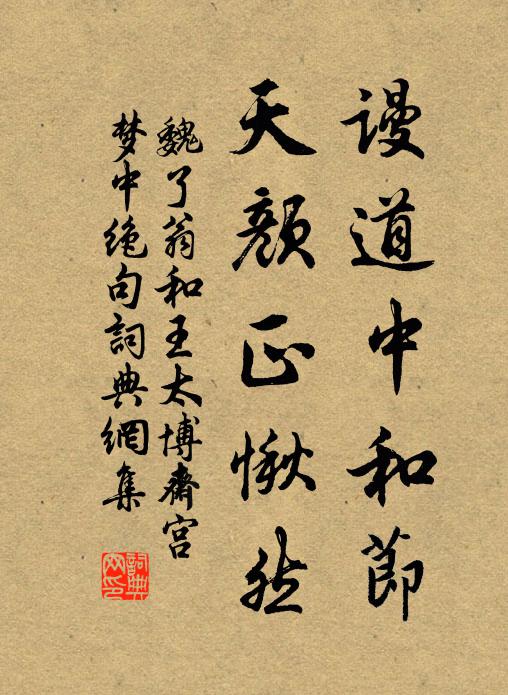 謾道中和節
天顔正愀然
魏了翁和王太博齋宫
梦中绝句詞典網集
詞典
网印